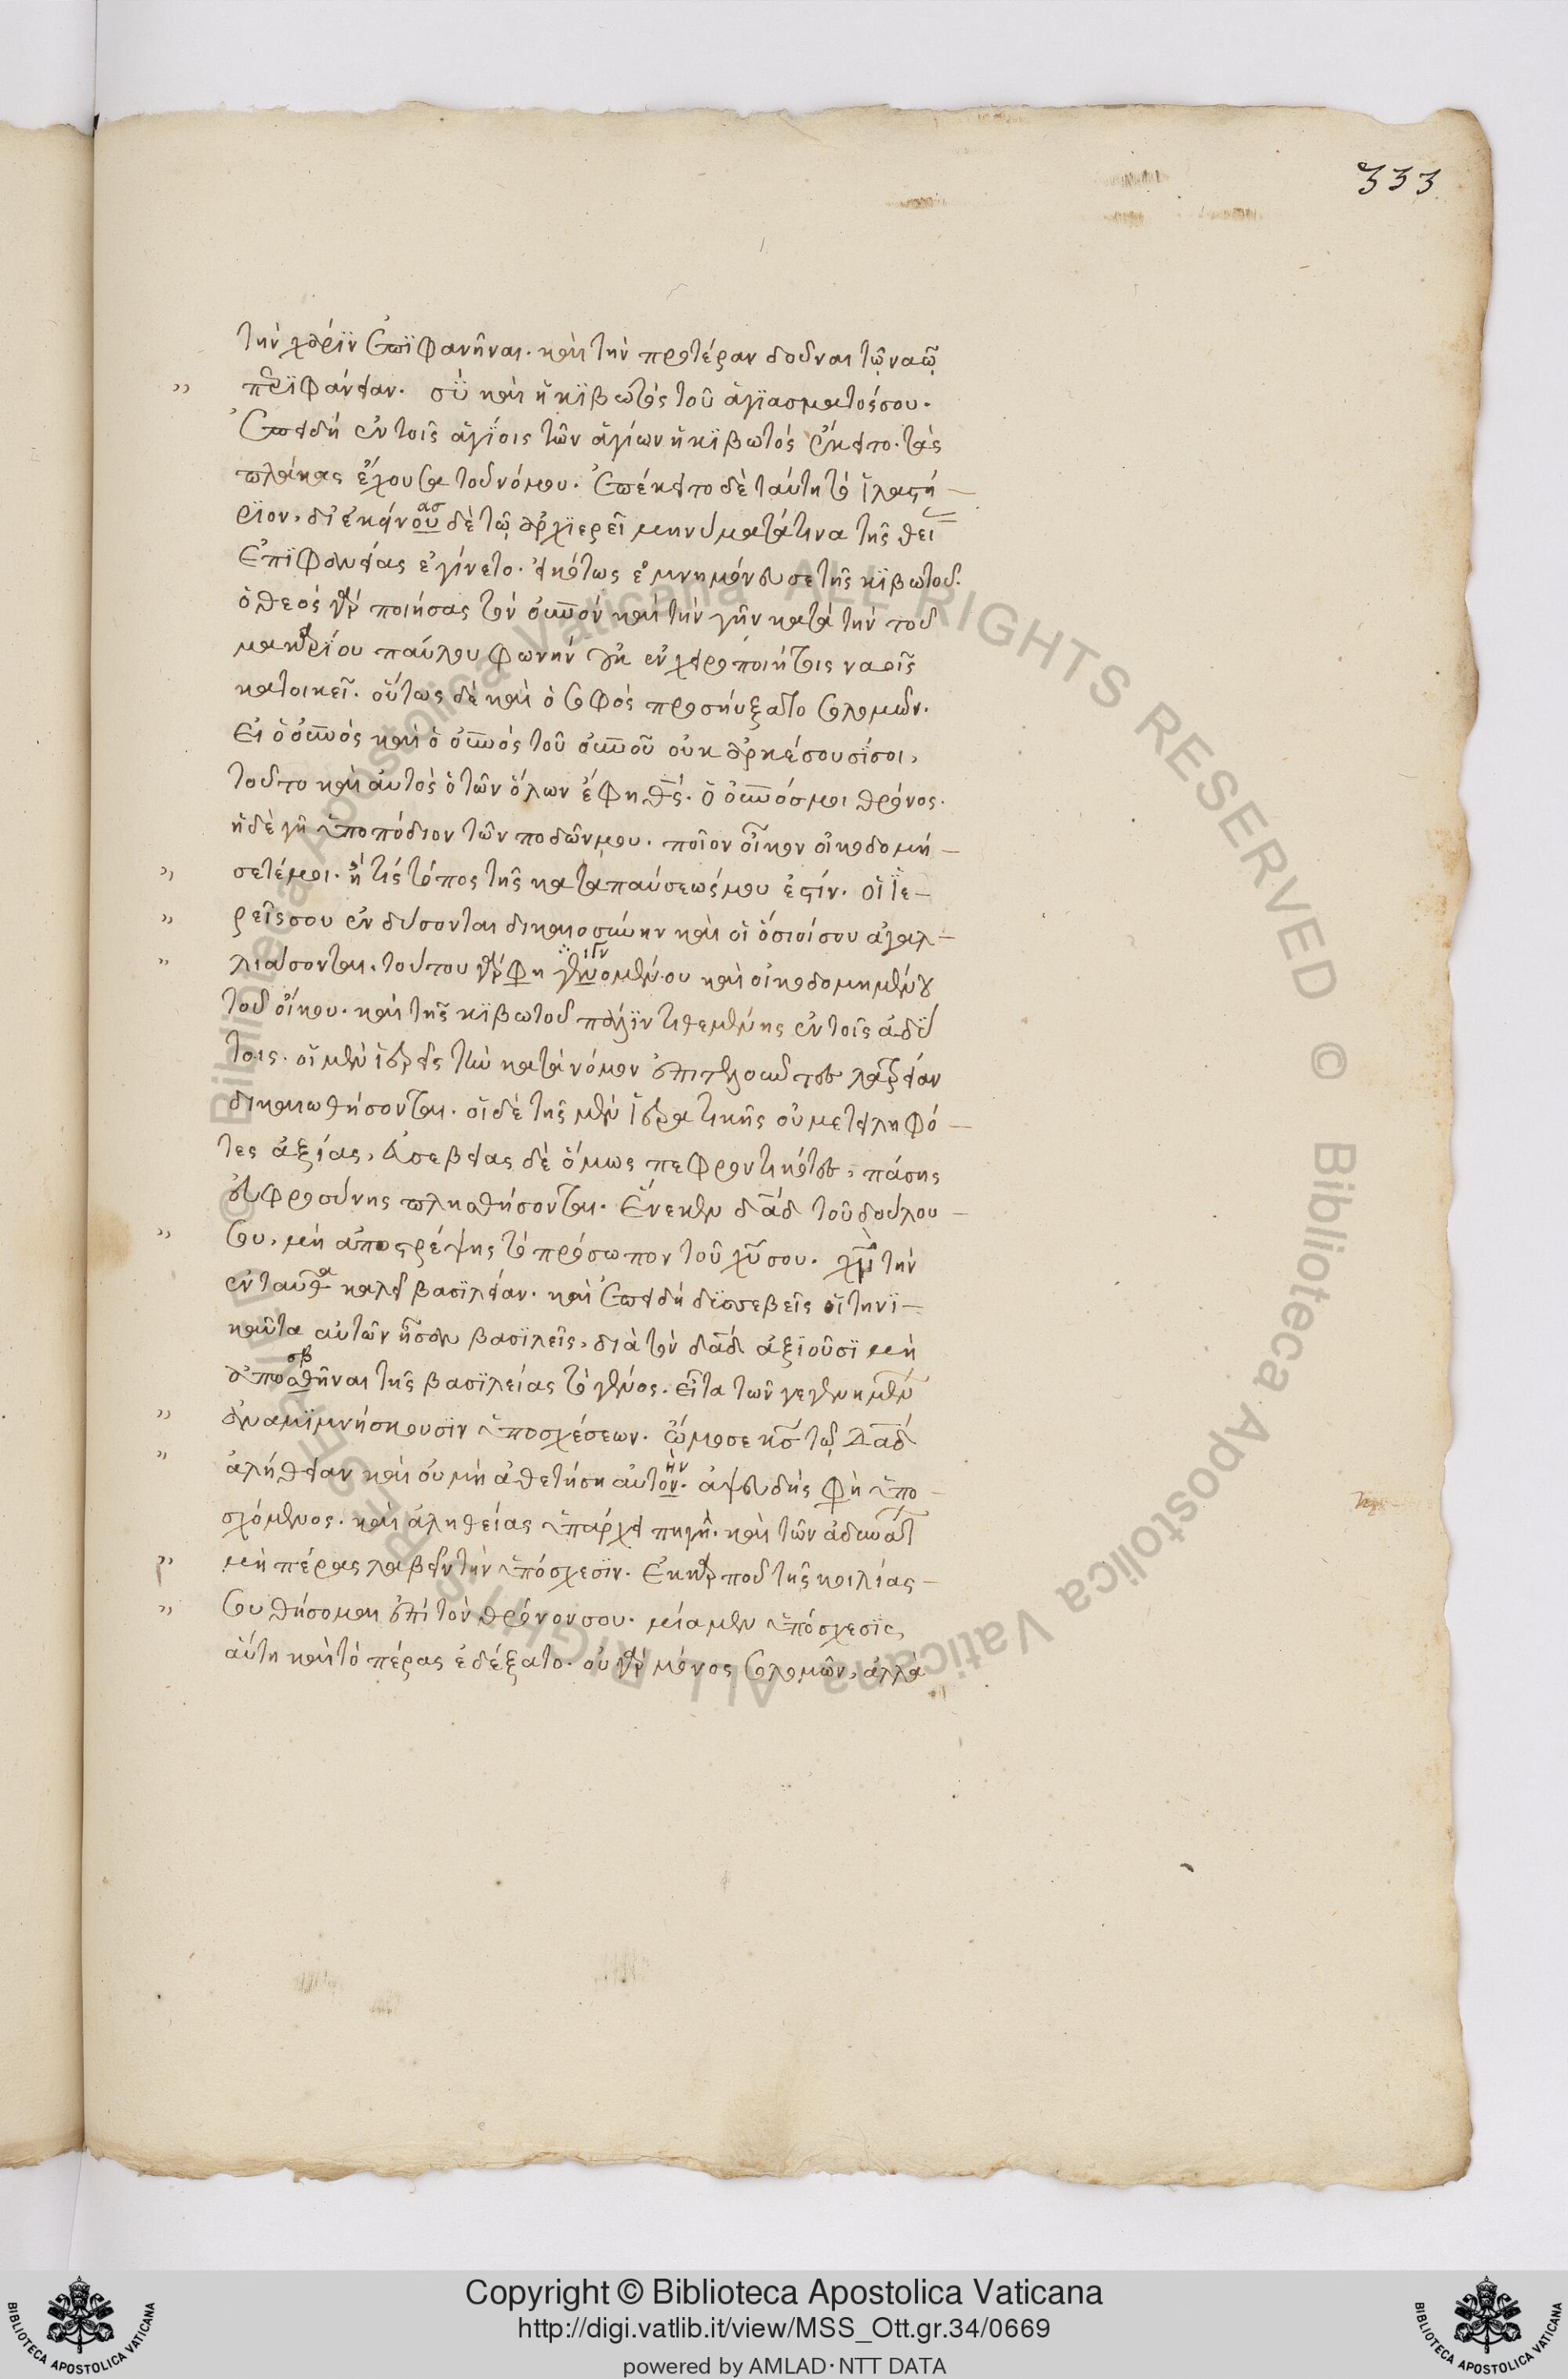 333
τὴν χάριν ἐπιφανῆναι. καὶ τὴν προτέραν δοῦναι τῷ ναῷ
περιφάνειαν. σὺ καὶ ἡ κιβωτὸς τοῦ ἁγιάσματός σου.
Ἐπειδὴ ἐν τοῖς ἁγίοις τῶν ἁγίων ἡ κιβωτὸς ἔκειτο. τὰς
πλάκας ἔχουσα τοῦ νόμου. ἐπέκειτο δὲ ταύτῃ τὸ ἱλαστή–
ριον, δι' ἐκείνου δὲ τῷ ἀρχιερεῖ μηνύματά τινα τῆς θεί
ἐπιφανείας ἐγίνετο. εἰκότως ἐμνημόνευσε τῆς κιβωτοῦ.
ὁ θεὸς γὰρ ποιήσας τὸν οὐνον καὶ τὴν γῆν κατὰ τὴν τοῦ
μακαρίου παύλου φωνὴν οὐκ ἐν χειροποιήτοις ναοῖς
κατοικεῖ. οὕτως δὲ καὶ ὁ σοφὸς προσηύξατο σολομών.
Εἰ ὁ οὐνος καὶ ὁ οὐνος τοῦ οὐνου οὐκ ἀρκέσουσί σοι,
τοῦτο καὶ αὐτὸς ὁ τῶν ὅλων ἔφη θς. ὁ οὐνος μοι θρόνος.
ἡ δὲ γῆ ὑποπόδιον τῶν ποδῶν μου. ποῖον οἶκον οἰκοδομή–
σετέ μοι. ἢ τίς τόπος τῆς καταπαύσεώς μου ἐστίν. οἱ ἱε–
ρεῖς σου ἐνδύσονται δικαιοσύνην καὶ οἱ ὅσιοί σου ἀγαλ–
λιάσονται. τούτου γὰρ φη γενομένου καὶ οἰκοδομημένου
τοῦ οἴκου. καὶ τῆς κιβωτοῦ πάλιν τιθεμένης ἐν τοῖς ἀδύ
τοις. οἱ μὲν ἱερεῖς τὴν κατὰ νόμον ἐπιτελοῦντες λατρείαν
δικαιωθήσονται. οἱ δὲ τῆς μὲν ἱερατικῆς οὐ μετειληφό–
τες ἀξίας, εὐσεβείας δὲ ὅμως πεφροντικότες, πάσης
εὐφροσύνης πλησθήσονται. Ἕνεκεν δαδ τοῦ δούλου
σου, μὴ ἀποστρέψῃς τὸ πρόσωπον τοῦ χυ σου. χν τὴν
ἐνταῦθα καλεῖ βασιλείαν. καὶ ἐπειδὴ δυσσεβεῖς οἱ τηνι–
καῦτα αὐτῶν ἦσαν βασιλεῖς, διὰ τὸν δαδ ἀξιοῦσι μὴ
ἀποσβεσθῆναι τῆς βασιλείας τὸ γένος. εἶτα τῶν γεγενημέν
ἀναμιμνήσκουσιν ὑποσχέσεων. ὤμοσε κς τῷ Δαδ
ἀλήθειαν καὶ οὐ μὴ ἀθετήσῃ αὐτόν. ἀψευδὴς φη ὑπο–
σχόμενος. καὶ ἀληθείας ὑπάρχει πηγή. καὶ τῶν ἀδυνάτ
μὴ πέρας λαβεῖν τὴν ὑπόσχεσιν. Ἐκ καρποῦ τῆς κοιλίας–
σου θήσομαι ἐπὶ τὸν θρόνον σου. μία μὲν ὑπόσχεσις
αὕτη καὶ τὸ πέρας ἐδέξατο. οὐ γὰρ μόνος σολομῶν, ἀλλὰ
Copyright © Biblioteca Apostolica Vaticana
http://digi.vatlib.it/view/MSS_Ott.gr.34/0669
powered by AMLAD·NTT DATA